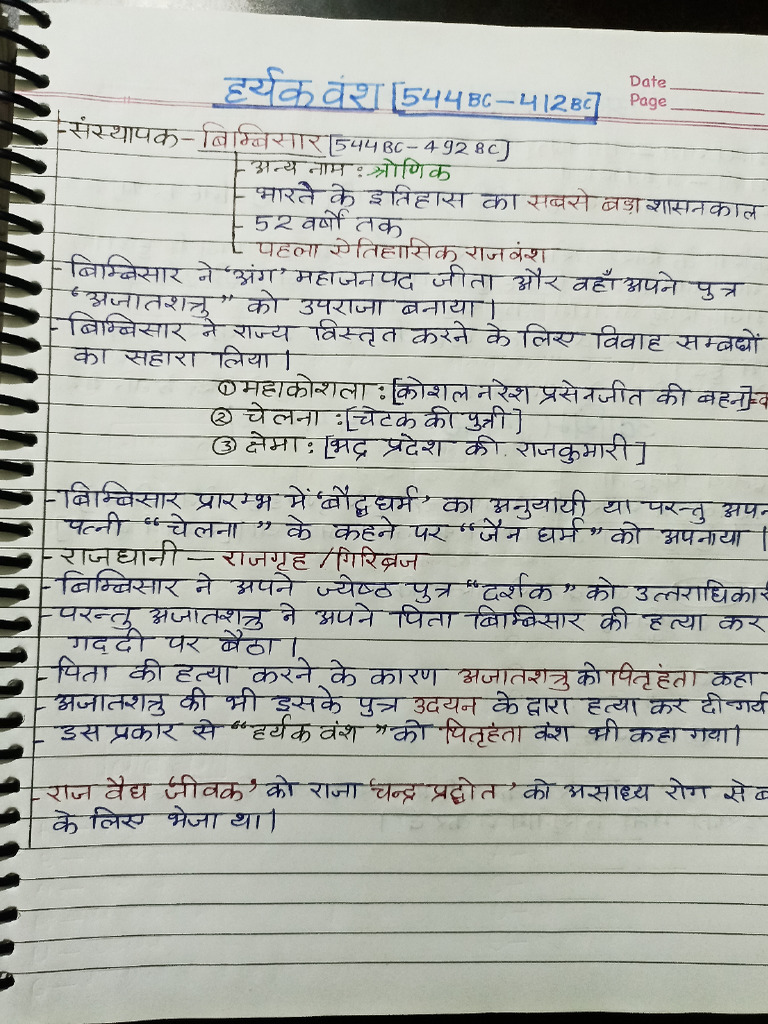 Date
Page
हर्यक वंश [544BC-412BC]
- संस्थापक - बिम्बिसार [544BC-492BC]
- अन्य नाम : श्रोणिक
- भारत के इतिहास का सबसे बड़ा शासनकाल
- 52 वर्षों तक
- पहला ऐतिहासिक राजवंश
- बिम्बिसार ने 'अंग' महाजनपद जीता और वहाँ अपने पुत्र
"अजातशत्रु" को उपराजा बनाया।
- बिम्बिसार ने राज्य विस्तृत करने के लिए विवाह सम्बधों
का सहारा लिया।
① महाकोशला : [कोशल नरेश प्रसेनजीत की बहन]
② चेलना : [चेटक की पुत्री]
③ क्षेमा : [भद्र प्रदेश की राजकुमारी]
- बिम्बिसार प्रारम्भ में 'बौद्धधर्म' का अनुयायी था परन्तु
पत्नी "चेलना" के कहने पर "जैन धर्म" को अपनाया।
- राजधानी - राजगृह / गिरिब्रज
- बिम्बिसार ने अपने ज्येष्ठ पुत्र "दर्शक" को
- परन्तु अजातशत्रु ने अपने पिता बिम्बिसार की हत्या कर
गद्दी पर बैठा।
- पिता की हत्या करने के कारण अजातशत्रु को पितृहंता कहा
- अजातशत्रु की भी इसके पुत्र उदयन के द्वारा हत्या कर दी गयी
- इस प्रकार से "हर्यक वंश" को पितृहंता वंश भी कहा गया।
- राज वैद्य 'जीवक' को राजा 'चन्द्र प्रद्योत' को असाध्य रोग से
के लिए भेजा था।